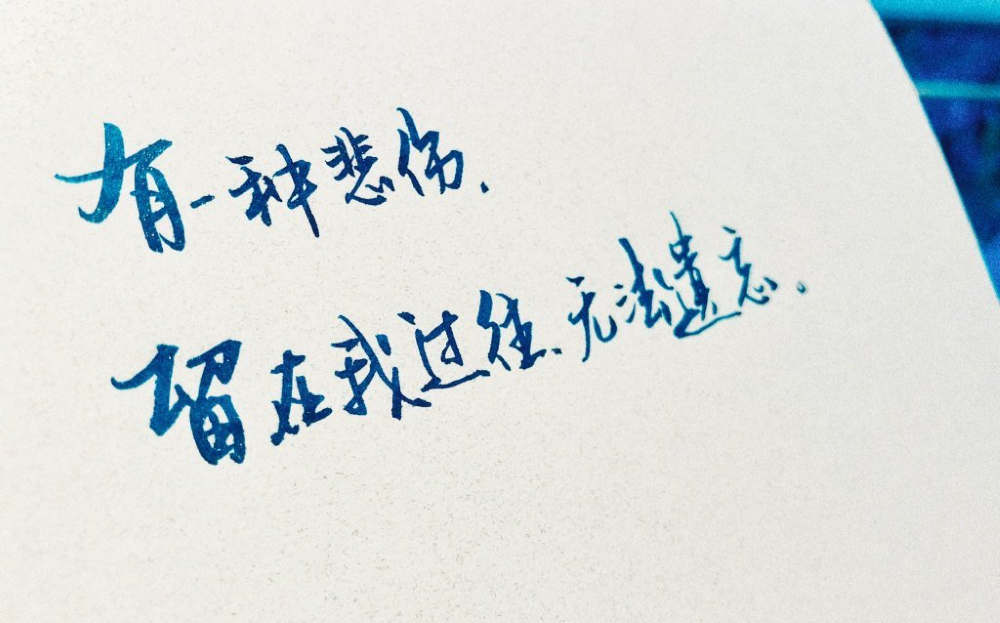 有一种悲伤.
留在我过往、无法遗忘.